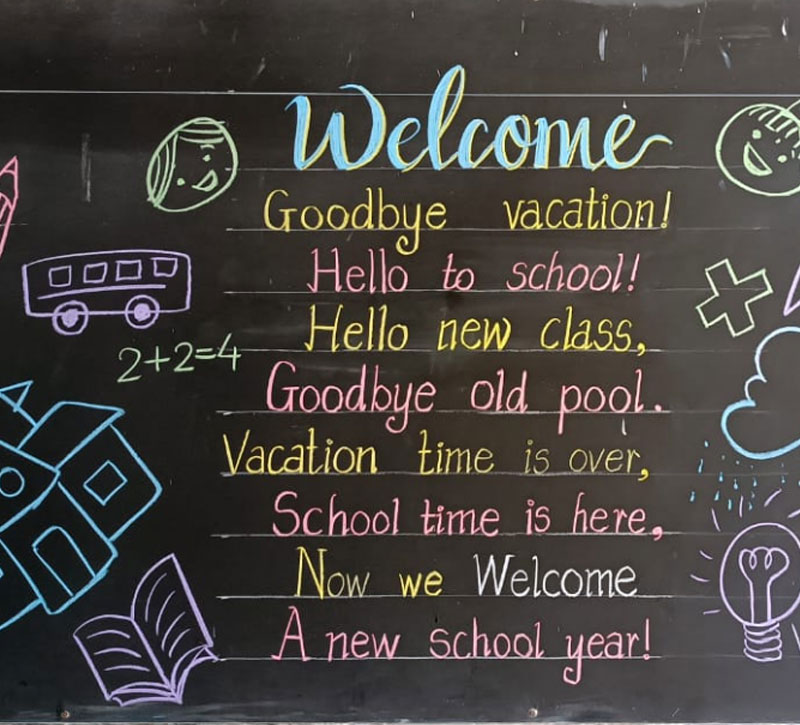 Welcome
Goodbye vacation!
Hello to school!
Hello new class,
2+2=4
Goodbye old pool.
Vacation time is over,
School time is here,
Now we Welcome
A new school year!